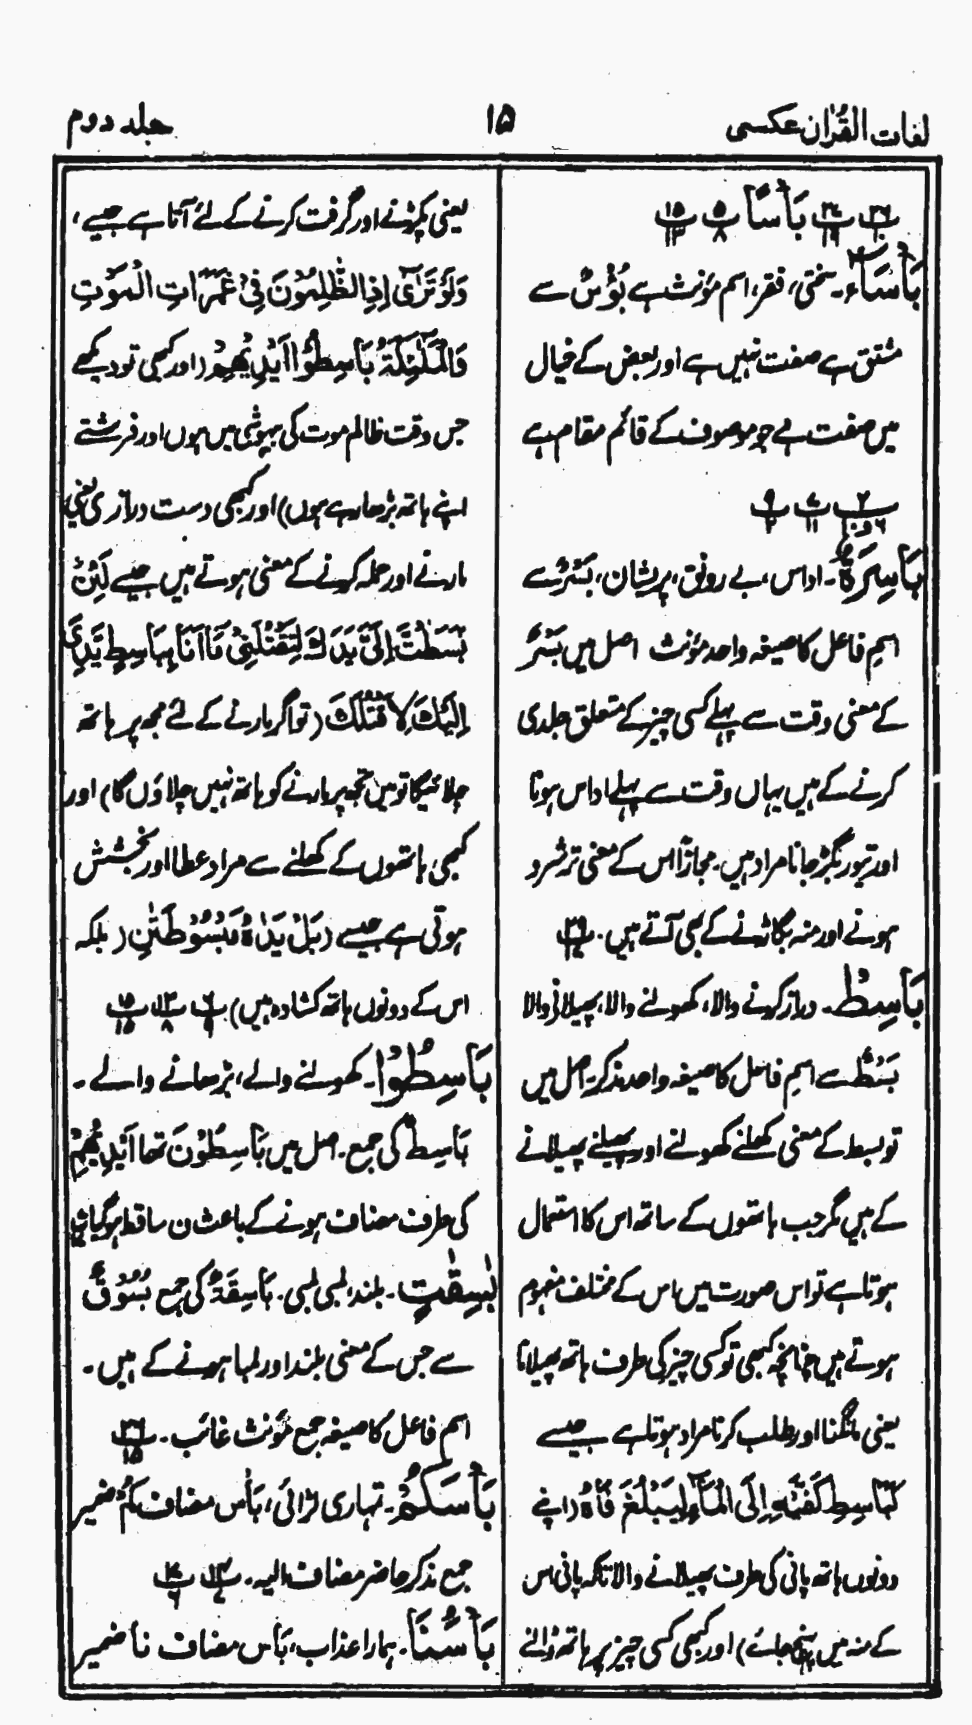 لغات القرآن عکسی
۱۵
جلد دوم
بَأْسًا
بَأْسَاء۔ سختی، فقر، اسم مؤنث ہے بُؤْسٌ سے
مشتق ہے صفت نہیں ہے اور بعض کے خیال
میں صفت ہے جو موصوف کے قائم مقام ہے
بَاسِرَةٌ۔ اداس، بے رونق، پریشان، بَسْرٌ سے
اسم فاعل کا صیغہ واحد مؤنث اصل میں بَسْرٌ
کے معنی وقت سے پہلے کسی چیز کے متعلق جلدی
کرنے کے ہیں یہاں وقت سے پہلے اداس ہونا
اور تیور بگڑ جانا مراد ہیں۔ مجازاً اس کے معنی ترشرو
ہونے اور منہ بگاڑنے کے بھی آتے ہیں۔
بَاسِطٌ۔ دراز کرنے والا، کھولنے والا، پھیلانے والا
بَسْطٌ سے اسم فاعل کا صیغہ واحد مذکر۔ اصل میں
تو بسط کے معنی کھلنے کھولنے اور پھیلنے پھیلانے
کے ہیں مگر جب ہاتھوں کے ساتھ اس کا استعمال
ہوتا ہے تو اس صورت میں اس کے مختلف مفہوم
ہوتے ہیں چنانچہ کبھی تو کسی چیز کی طرف ہاتھ پھیلانا
یعنی مانگنا اور طلب کرنا مراد ہوتا ہے جیسے
كَبَاسِطِ كَفَّيْهِ اِلَى الْمَآءِ لِيَبْلُغَ فَاهُ (اپنے
دونوں ہاتھ پانی کی طرف پھیلانے والا تاکہ پانی اس
کے منہ میں پہنچ جائے) اور کبھی کسی چیز پر ہاتھ ڈالنے
یعنی پکڑنے اور گرفت کرنے کے لئے آتا ہے جیسے،
وَلَوْ تَرٰٓى اِذِ الظّٰلِمُوْنَ فِيْ غَمَرَاتِ الْمَوْتِ
وَالْمَلٰٓئِكَةُ بَاسِطُوْٓا اَيْدِيْهِمْ (اور کبھی تو دیکھے
جس وقت ظالم موت کی بیہوشی میں ہوں اور فرشتے
اپنے ہاتھ بڑھا رہے ہوں) اور کبھی دست درازی یعنی
مارنے اور حملہ کرنے کے معنی ہوتے ہیں جیسے لَئِنْ
بَسَطْتَّ اِلَيَّ يَدَكَ لِتَقْتُلَنِيْ مَا اَنَا بِبَاسِطٍ يَّدِيَ
اِلَيْكَ لِاَقْتُلَكَ (تو اگر مارنے کے لئے مجھ پر ہاتھ
چلائیگا تو میں تجھ پر مارنے کو ہاتھ نہیں چلاؤں گا) اور
کبھی ہاتھوں کے کھلنے سے مراد عطا اور بخشش
ہوتی ہے جیسے (بَلْ يَدٰهُ مَبْسُوْطَتٰنِ) بلکہ
اس کے دونوں ہاتھ کشادہ ہیں)
بَاسِطُوْا۔ کھولنے والے، بڑھانے والے۔
بَاسِطٌ کی جمع۔ اصل میں بَاسِطُوْنَ تھا اَيْدِيْهِمْ
کی طرف مضاف ہونے کے باعث ن ساقط ہو گیا
بٰسِقٰتٍ۔ بلند، لمبی لمبی۔ بَاسِقَةٌ کی جمع بُسُوْقٌ
سے جس کے معنی بلند اور لمبا ہونے کے ہیں۔
اسم فاعل کا صیغہ جمع مؤنث غائب۔
بَأْسَكُمْ۔ تمہاری لڑائی، بَأْس مضاف كُمْ ضمیر
جمع مذکر حاضر مضاف الیہ۔
بَأْسُنَا۔ ہمارا عذاب، بَأْس مضاف نا ضمیر